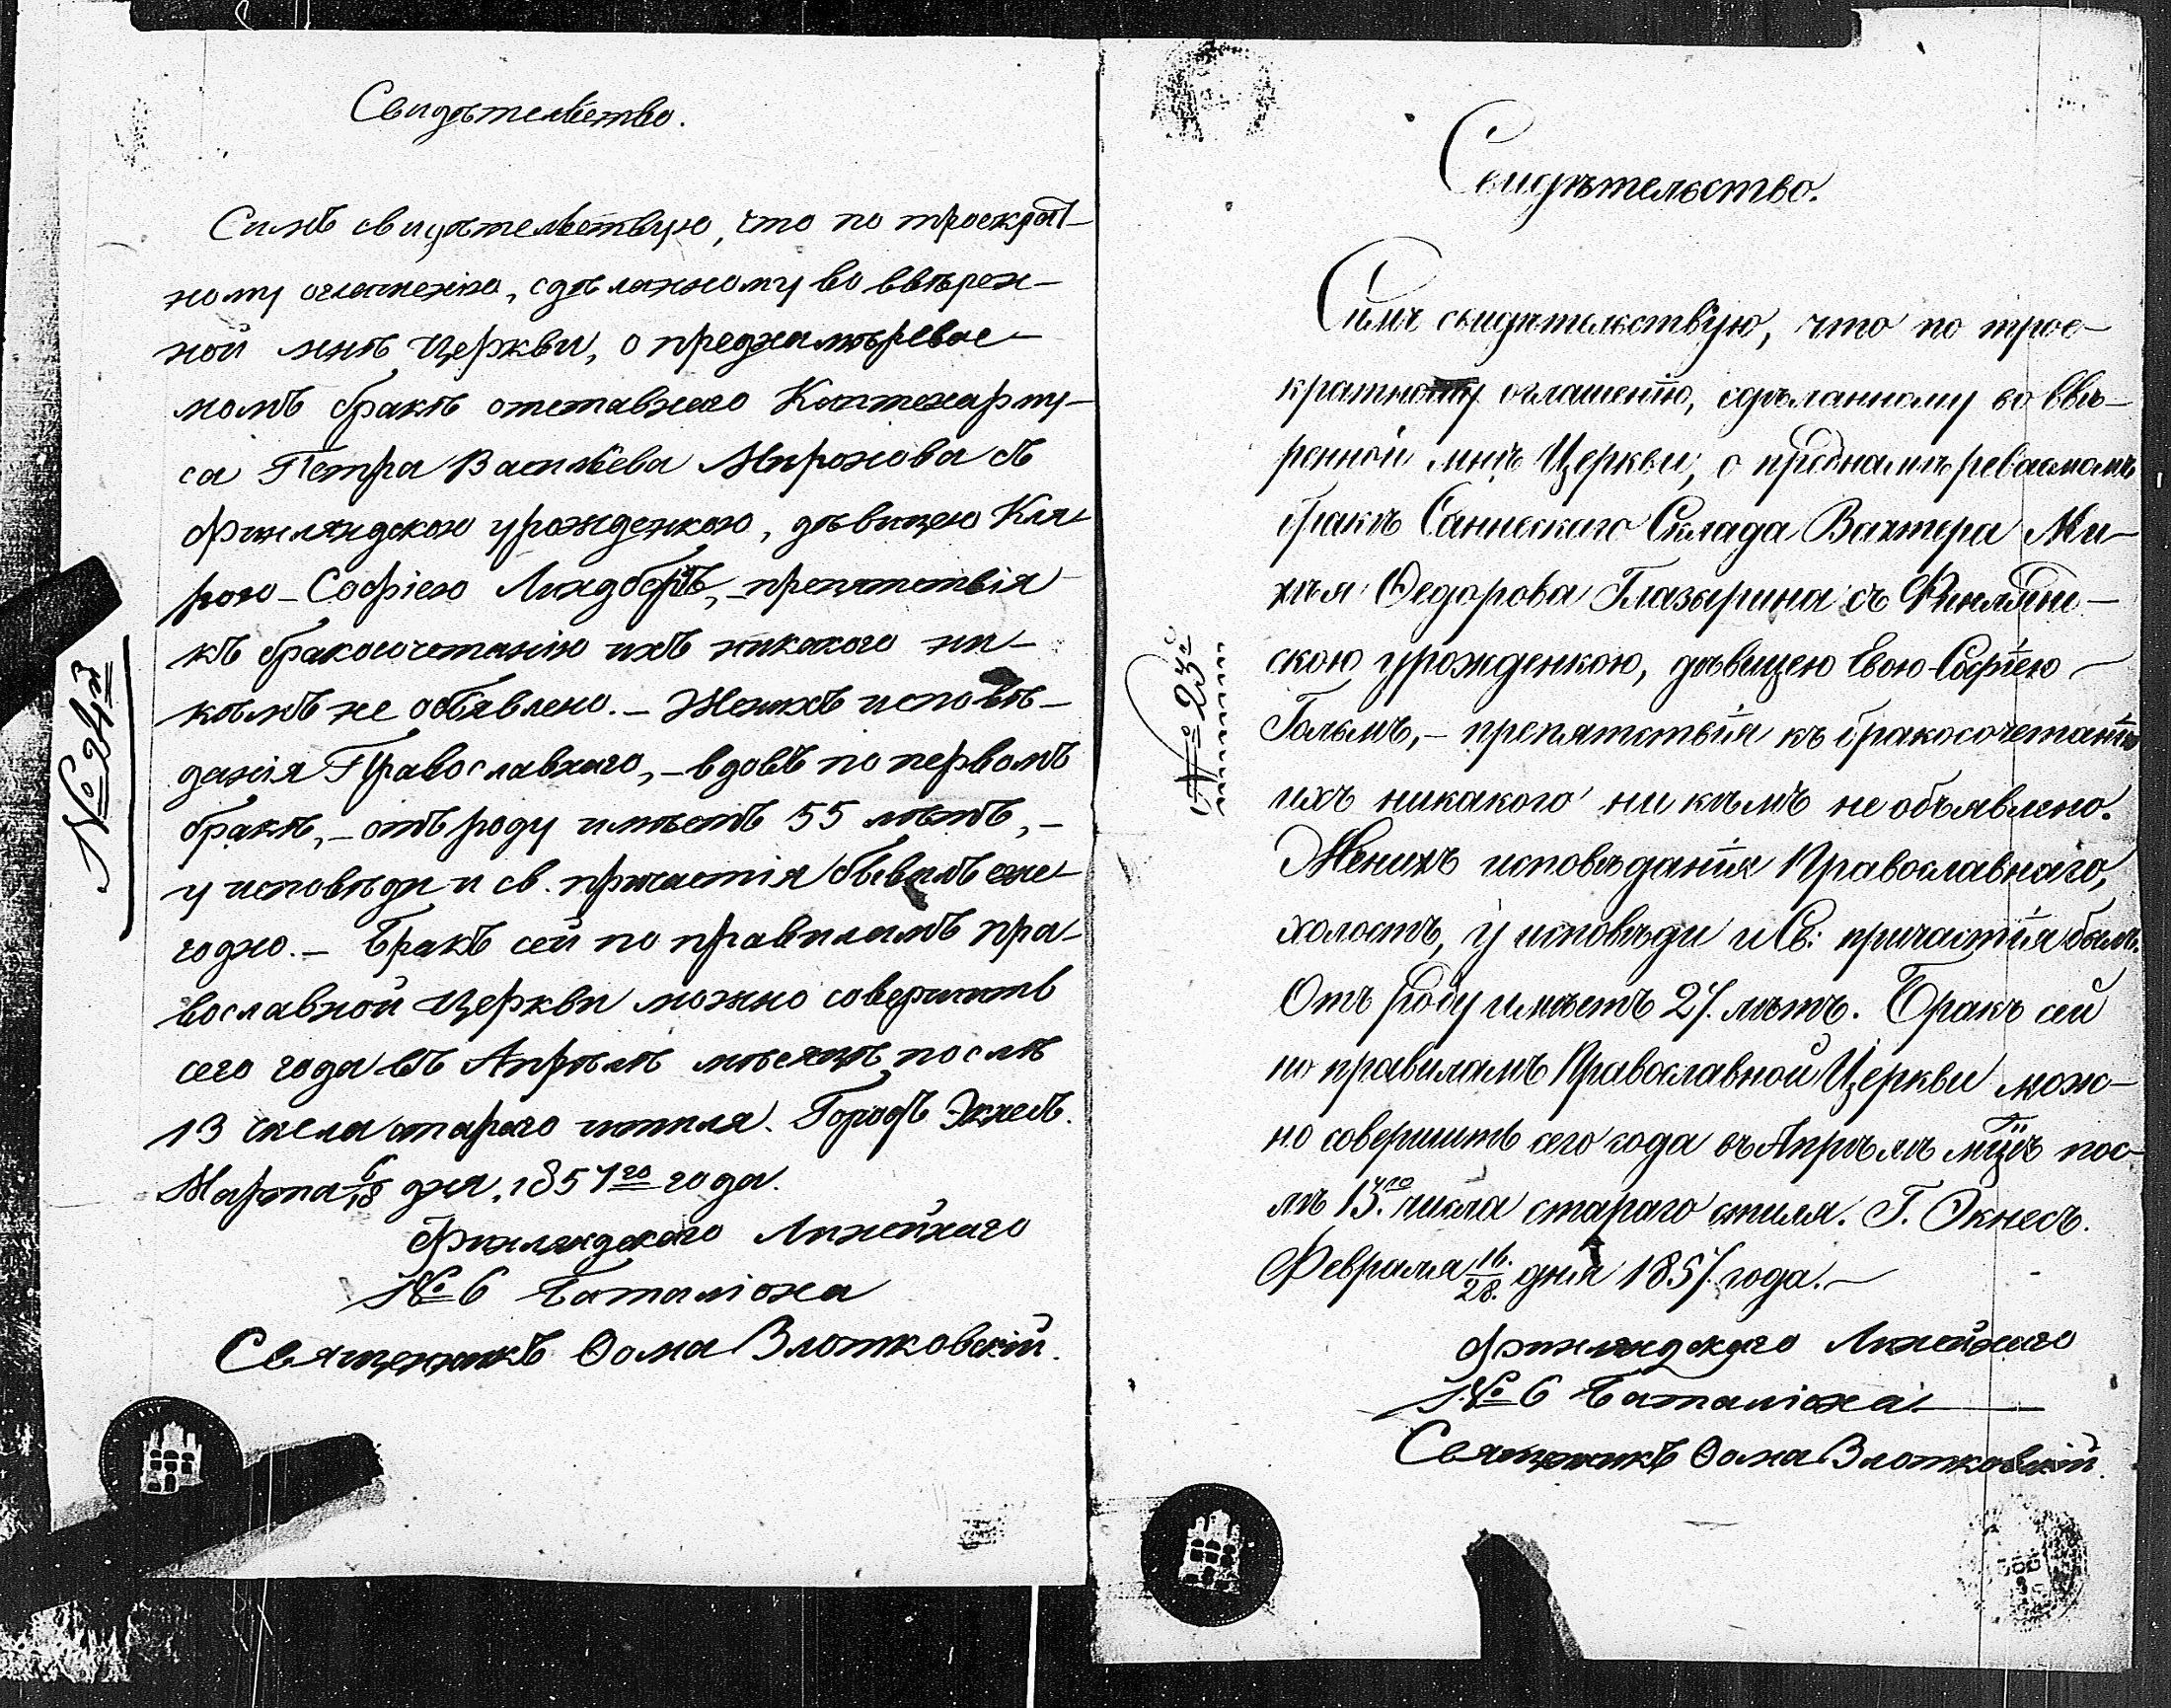 Свидѣтельство.
Симъ свидѣтельствую, что по троекрат-
ному оглашенію, сдѣланному во ввѣрен-
ной мнѣ Церкви, о преднамѣревае-
момъ бракѣ отставнаго Каптенарму-
са Петра Васильева Миронова съ
Финляндскою урожденкою, дѣвицею Кла-
рою-Софіею Линдбергъ, - препятствія
къ бракосочетанію ихъ никакого ни-
кѣмъ не объявлено. - Женихъ исповѣ-
данія Православнаго, - вдовъ по первомъ
бракѣ, - отъ роду имѣетъ 55 лѣтъ, -
у исповѣди и св. причастія бывалъ еже-
годно. - Бракъ сей по правиламъ пра-
вославной Церкви можно совершить
сего года въ Апрѣлѣ мѣсяцѣ послѣ
13 числа стараго штиля. Городъ Экнесъ.
Марта 6/18 дня, 1857го года.
Финляндскаго Линейнаго
№ 6 Баталіона
Священникъ Ѳома Злотковскій.
№ 243
Свидѣтельство.
Симъ свидѣтельствую, что по трое-
кратному оглашенію, сдѣланному во ввѣ-
ренной мнѣ Церкви, о преднамѣреваемомъ
бракѣ Саннескаго Склада Вахтера Ми-
хея Ѳедорова Глазырина съ Финлянд-
скою урожденкою, дѣвицею Евою-Софіею
Гольмъ, - препятствія къ бракосочетанію
ихъ никакого ни кѣмъ не объявлено.
Женихъ исповѣданія Православнаго,
холостъ, у исповѣди и Св: причастія былъ.
Отъ роду имѣетъ 27. лѣтъ. Бракъ сей
по правиламъ Православной Церкви мож-
но совершить сего года въ Апрѣлѣ мцѣ пос-
лѣ 13.го числа стараго стиля. Г. Экнесъ.
Февраля 16./28. дня 1857. года. -
Финляндскаго Линейнаго
№ 6 Баталіона
Священникъ Ѳома Злотковскій.